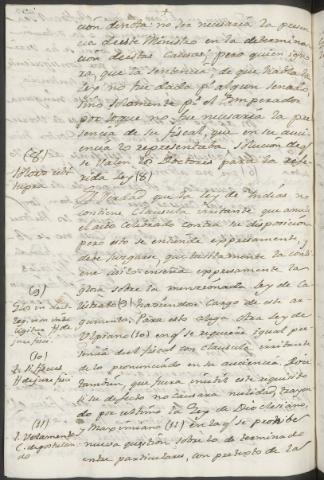 cion denota no ser necesaria la presen
cia de este Ministro en la determina
cion de estas causas; pero quien igno
ra, que la sentencia, de que habla la
Ley no fue dada por algun senado,
sino solamente pr. el Emperador
por lo que no fue necesaria la pre
sencia de su fiscal, que en su au
cia lo representaba, solucion de q.
se valen los Doctores para la refe
rida Ley (8)
(8)
supra
Es verdad que la Ley de Indias no
contiene clausula irritante que anule
el acto celebrado contra su disposicion
pero esto se entiende expresamente, y
debe juzgarse, que tacitamente la contie
ne como enseña expresamente la
glosa sobre la mencionada Ley de Ca
listrato (9) haciendose cargo de este ar
gumento. Para esto alega otra Ley de
Ulpiano (10) en q. se requeria igual pre
sencia del fiscal con clausula irritante
de lo pronunciado en su ausencia. Dice
tambien, que fuera inutil este requisito
si su defecto no causara nulidad, trayen
do por ultimo la Ley de Diocleciano,
y Maximiano (11) en la q. se prohibe
nueva question sobre lo determinado
entre particulares, con pretexto de la
(9)
(10)
H de jure fisci
(11)